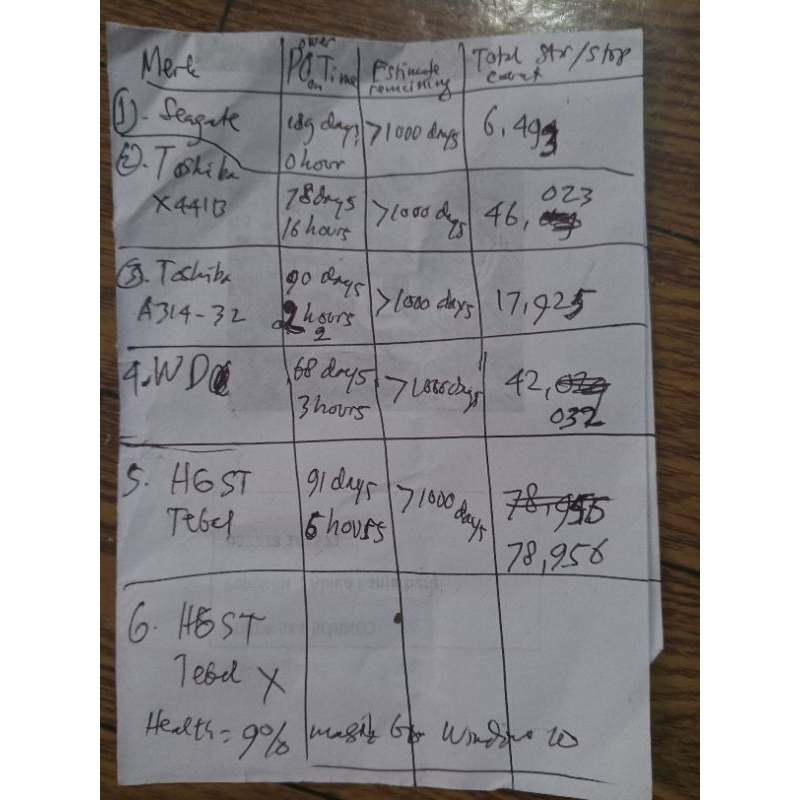 Merk
Power
on Time
Estimate
remaining
Total Str/Stop
count
1. Seagate
189 days
0 hour
>1000 days
6,493
2. Toshiba
X441B
78 days
16 hours
>1000 days
46,023
3. Toshiba
A314-32
90 days
2 hours
2
>1000 days
17,925
4. WD
68 days
3 hours
>1000 days
42,032
5. HGST
Tebel
91 days
6 hours
>1000 days
78,956
78,956
6. HGST
Tebel X
Health = 9% masih Windows 10